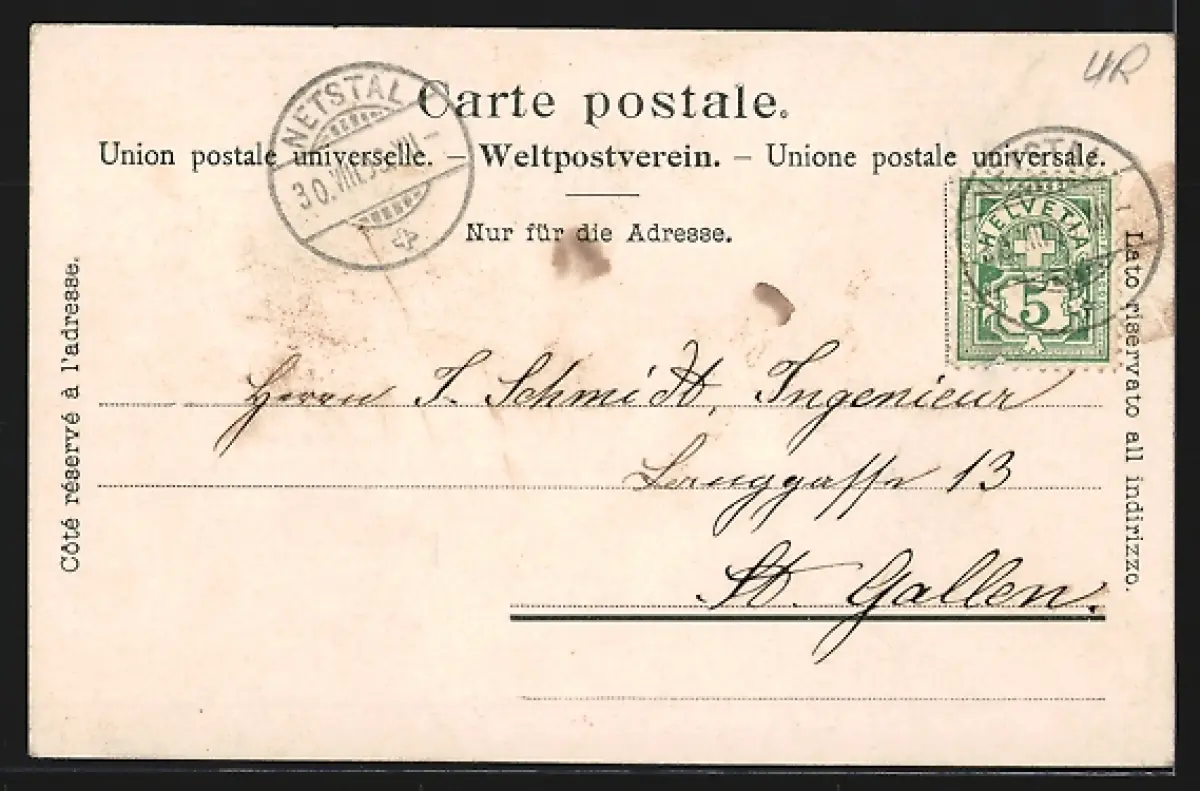 4R
Carte postale.
Union postale universelle. – Weltpostverein. – Unione postale universale.
Nur für die Adresse.
NETSTAL
30.VIII.
NETSTAL
HELVETIA
5
Côté réservé à l'adresse.
Lato riservato all indirizzo.
Herrn J. Schmidt, Ingenieur
13
St. Gallen.